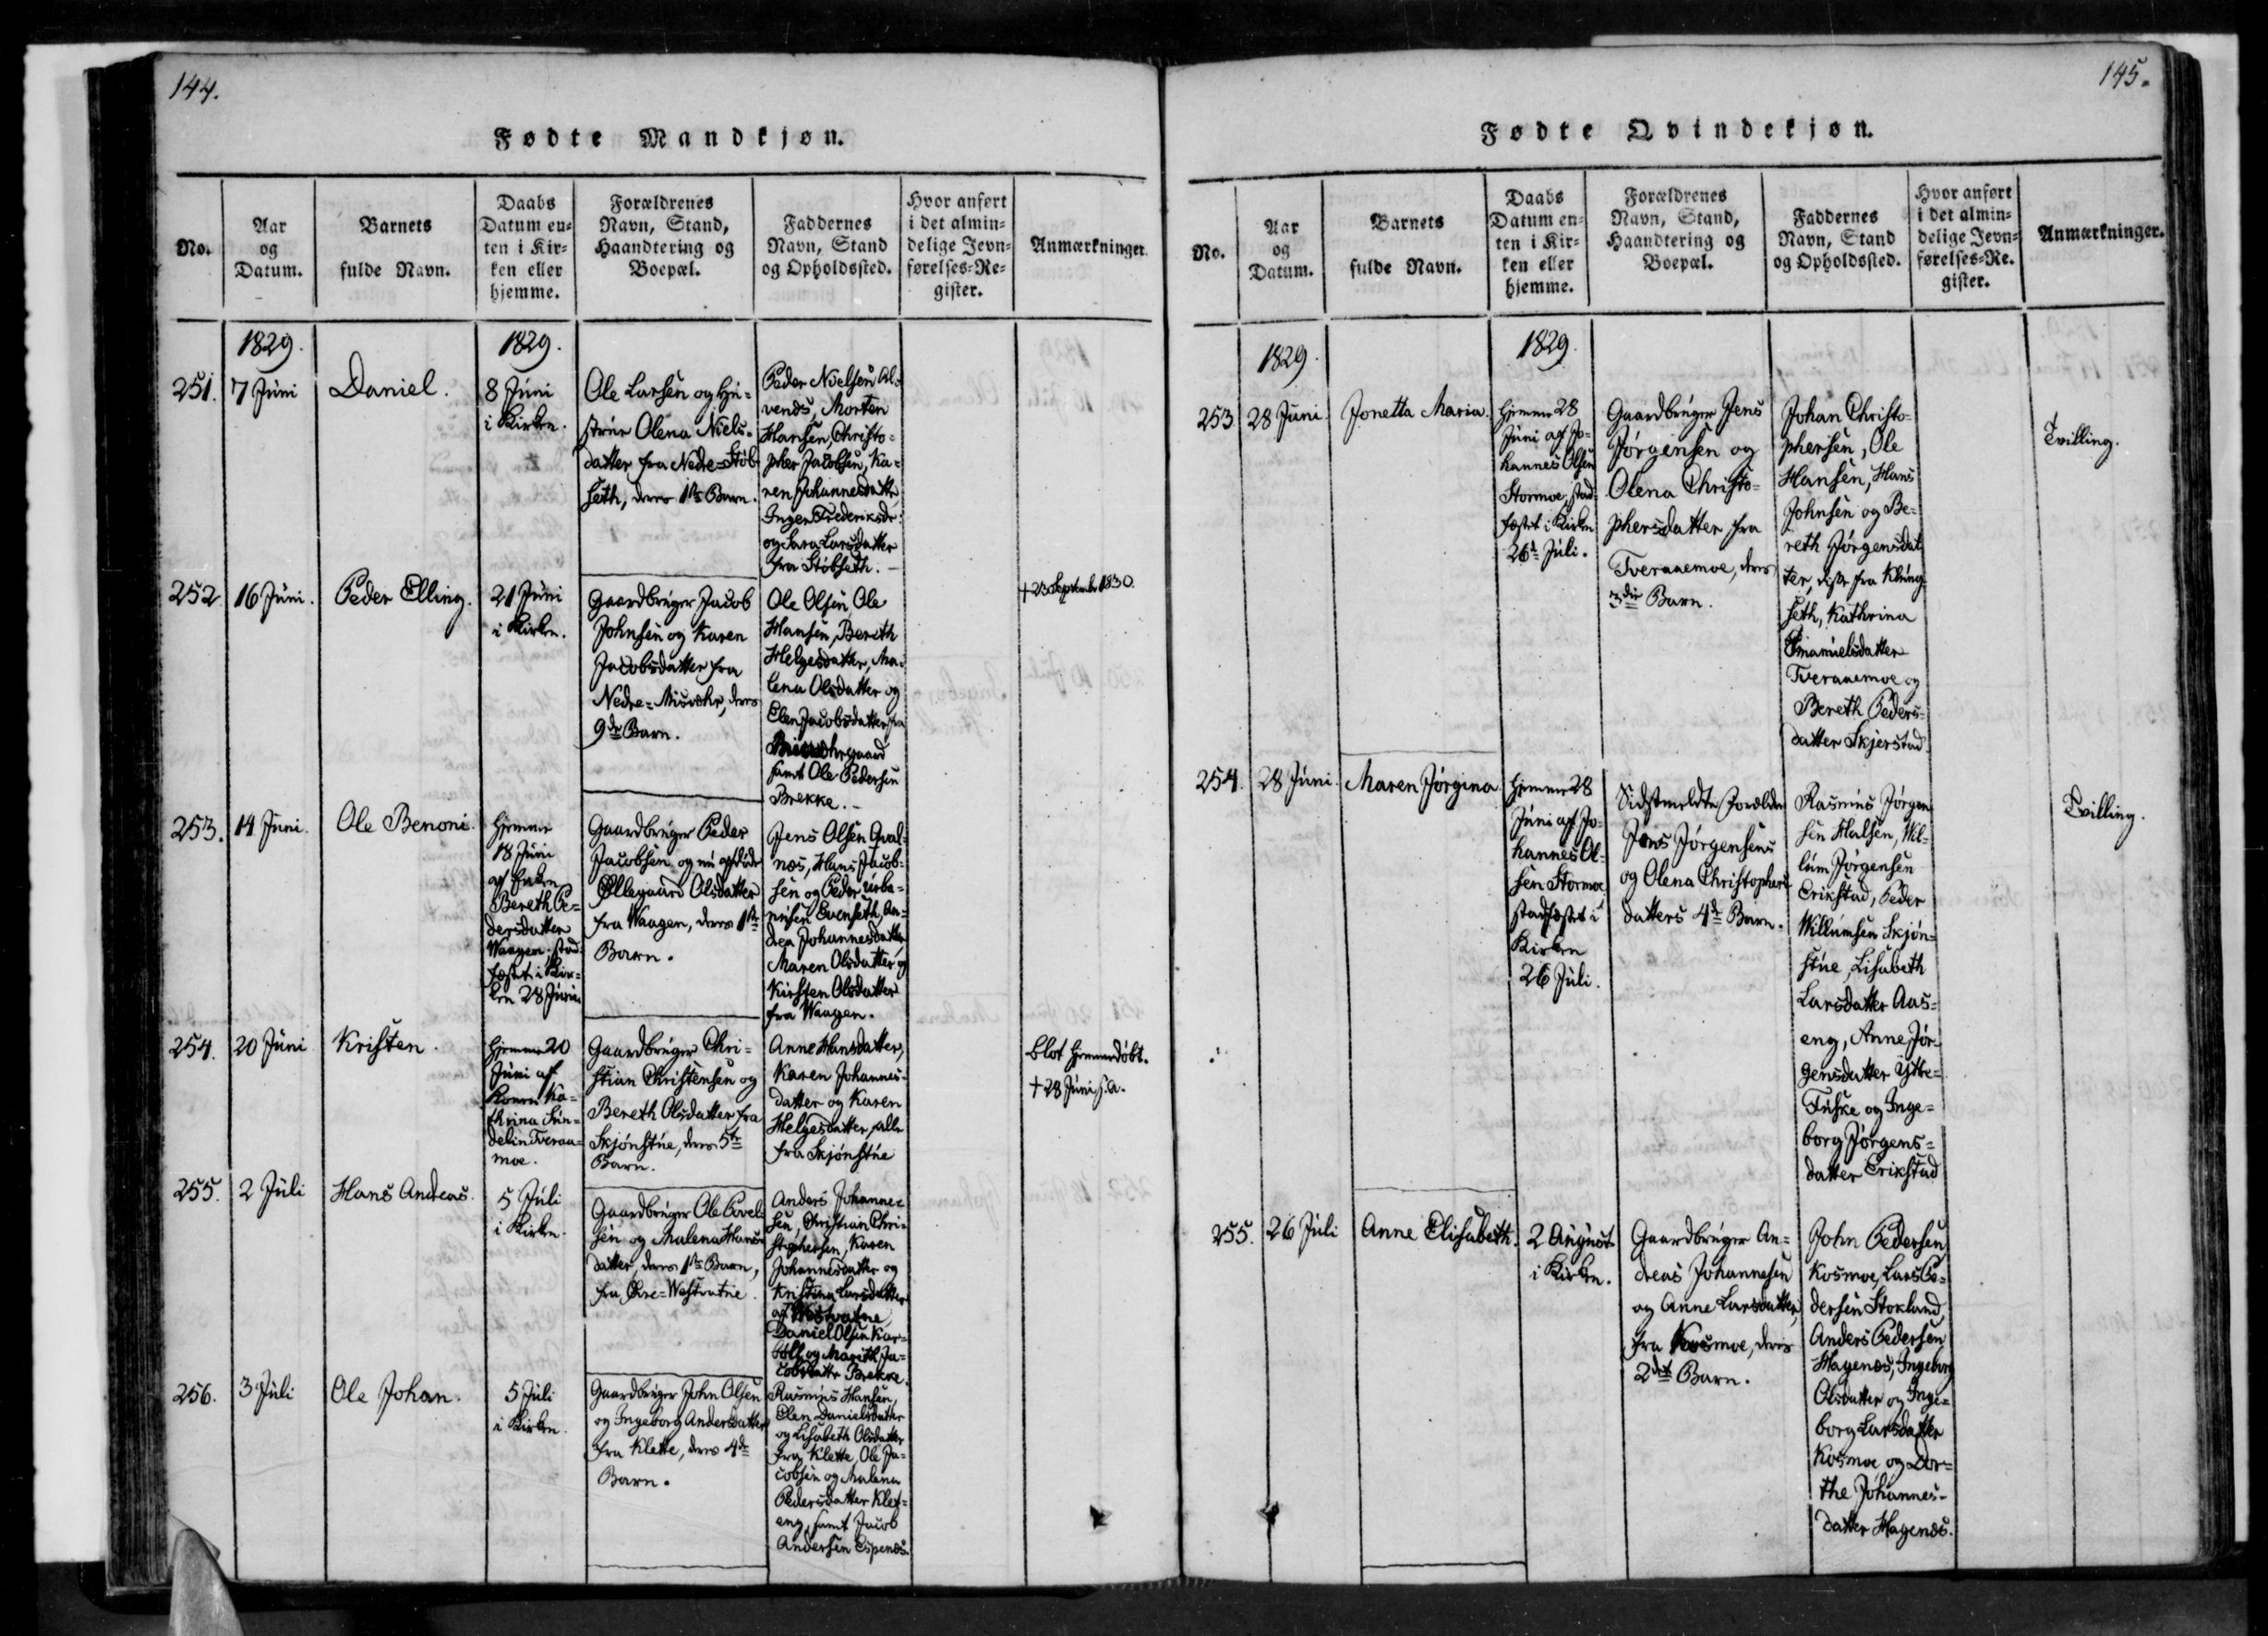 144.
Fødte Mandkjøn.
No.
Aar
og
Datum.
Barnets
fulde Navn.
Daabs
Datum en-
ten i Kir-
ken eller
hjemme.
Forældrenes
Navn, Stand,
Haandtering og
Boepæl.
Faddernes
Navn, Stand
og Opholdssted.
Hvor anført
i det almin-
delige Jevn-
førelses-Re-
gister.
Anmærkninger.
1829.
1829.
251.
7 Juni
Daniel.
8 Juni
i Kirken.
Ole Larsen og Hu-
strue Olena Niels-
datter fra Nedre-Støb-
seth, deres 1ste Barn.
Peder Nielsen Al-
venes, Morten
Hansen, Christo-
pher Jacobsen, Ka-
ren Johannesdatter
Inger Frederiksdr.
og Sara Larsdatter
fra Støbseth.
252
16 Juni.
Peder Elling.
21 Juni
i Kirken.
Gaardbruger Jacob
Johnsen og Karen
Jacobsdatter fra
Nedre-Misvær, deres
9de Barn.
Ole Olsen, Ole
Hansen, Bereth
Helgesdatter, Ma-
lena Olsdatter og
Elen Jacobsdatter fra
samt Ole Pedersen
Brekke.
+ 23 September 1830.
253.
14 Juni.
Ole Benoni.
hjemme
18 Juni
af Enken
Bereth Pe-
dersdatter
Waagen; stad-
fæstet i Kir-
ken 28 Juni.
Gaardbruger Peder
Jacobsen og nu afdøde
Ellegaard Olsdatter
fra Waagen, deres 1ste
Barn.
Jens Olsen Qval-
næs, Hans Jacob-
sen og Peder Urba-
nusen Evenseth, An-
drea Johannesdatter
Maren Olsdatter og
Kirsten Olsdatter
fra Waagen.
254.
20 Juni
Kristen.
hjemme 20
Juni af
Konen Ka-
thrina Sun-
delin Tveraa-
moe.
Gaardbruger Chri-
stian Christensen og
Bereth Olsdatter fra
Skjønstue, deres 5te
Barn.
Anne Hansdatter,
Karen Johannes-
datter og Karen
Helgesdatter, alle
fra Skjønstue
blot hjemmedøbt.
+ 28 Juni s.a.
255.
2 Juli
Hans Andreas.
5 Juli
i Kirken.
Gaardbruger Ole Povel-
sen og Malena Hans-
datter, deres 1ste Barn,
fra Øvre-Westvatne.
Anders Johanne-
sen, Christian Chri-
stophersen, Karen
Johannesdatter og
Kristina Larsdatter
af Westvatne
Daniel Olsen Kar-
boll og Mareth Ja-
cobsdatter Brekke.
256.
3 Juli
Ole Johan.
5 Juli
i Kirken.
Gaardbruger John Olsen
og Ingeborg Andersdatter
fra Klette, deres 4de
Barn.
Rasmus Hansen,
Elen Danielsdatter
og Lisabeth Olsdatter
fra Klette, Ole Ja-
cobsen og Malena
Pedersdatter Klet-
eng, samt Jacob
Andersen Espenæs.
145.
Fødte Qvindekjøn.
No.
Aar
og
Datum.
Barnets
fulde Navn.
Daabs
Datum en-
ten i Kir-
ken eller
hjemme.
Forældrenes
Navn, Stand,
Haandtering og
Boepæl.
Faddernes
Navn, Stand
og Opholdssted.
Hvor anført
i det almin-
delige Jevn-
førelses-Re-
gister.
Anmærkninger.
1829.
1829.
253
28 Juni.
Jonetta Maria.
hjemme 28
Juni af Jo-
hannes Olsen
Stormoe, stad-
fæstet i Kirken
26de Juli.
Gaardbruger Jens
Jørgensen og
Olena Christo-
phersdatter fra
Tveraaemoe, deres
3die Barn.
Johan Christo-
phersen, Ole
Hansen, Hans
Johnsen og Be-
reth Jørgensdat
ter, disse fra Klung-
seth, Kathrina
Emanuelsdatter
Tveraaemoe og
Bereth Peders-
datter Skjerstad
Tvilling.
254.
28 Juni.
Maren Jørgina.
hjemme 28
Juni af Jo-
hannes Ol-
sen Stormoe,
stadfæstet i
Kirken
26 Juli.
Sidstmeldte Forældre
Jens Jørgensens
og Olena Christophers
datters 4de Barn.
Rasmus Jørgen
sen Halsen, Wil-
lum Jørgensen
Erikstad, Peder
Willumsen Skjøn-
stue, Lisabeth
Larsdatter Aas-
eng, Anne Jør-
gensdatter Yttre-
Fuske og Inge-
borg Jørgens-
datter Erikstad
Tvilling.
255.
26 Juli
Anne Elisabeth.
2 August
i Kirken.
Gaardbruger An-
dreas Johannesen
og Anne Larsdatter,
fra Kosmoe, deres
2det Barn.
John Pedersen
Kosmoe, Lars Pe-
dersen Stokland,
Anders Pedersen
Hagenæs, Ingeborg
Olsdatter og Inge-
borg Larsdatter
Kosmoe og Dor-
the Johannes-
datter Hagenæs.